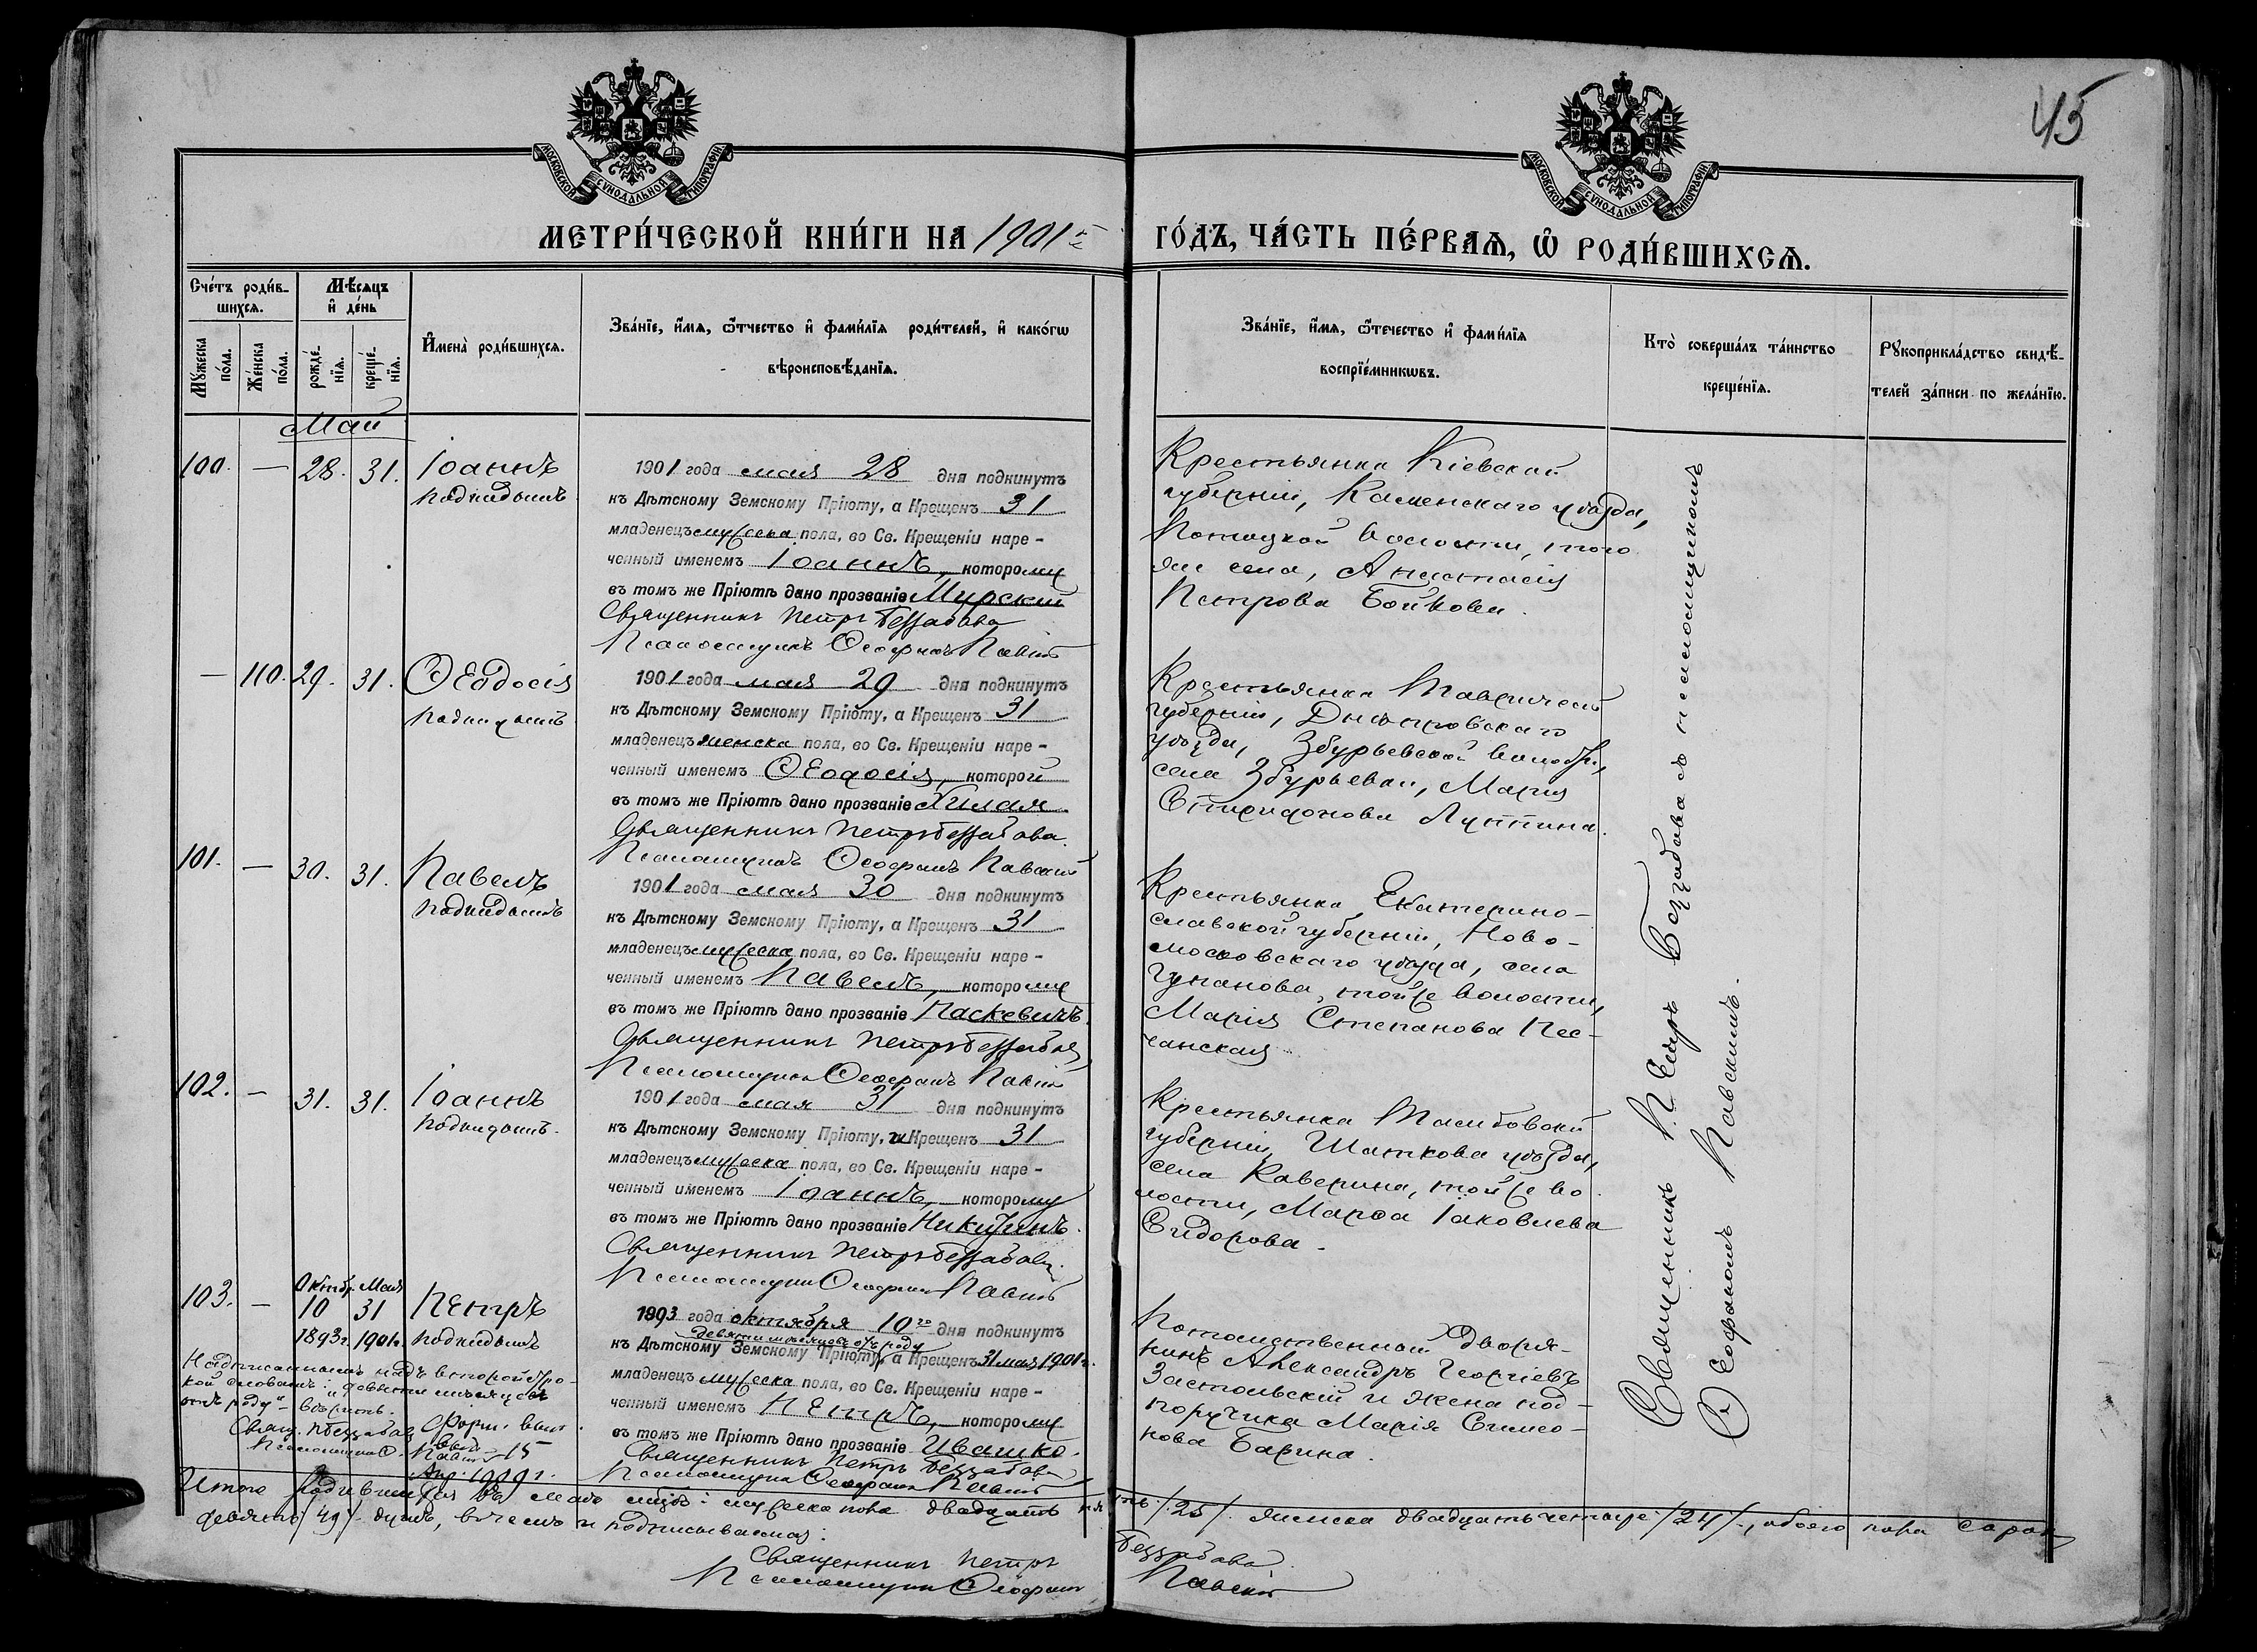 45
МОСКОВСКОЙ СѴНОДАЛЬНОЙ ТИПОГРАФІИ
МОСКОВСКОЙ СѴНОДАЛЬНОЙ ТИПОГРАФІИ
МЕТРИ́ЧЕСКОЙ КНИ́ГИ НА 1901й
ГО́ДЪ, ЧА́СТЬ ПЕ́РВАѦ, Ѡ РОДИ́ВШИХСѦ.
Сче́тъ роди́в-
шихсѧ.
Мѣ́сѧцъ
и҆ де́нь
Мꙋ́жеска
по́ла.
Же́нска
по́ла.
рожде́-
нїѧ.
креще́-
нїѧ.
И҆мена̀ роди́вшихсѧ.
Зва́нїе, и҆́мѧ, ѻ҆́тчество и҆ фами́лїѧ роди́телей, и҆ како́гѡ
вѣроисповѣ́данїѧ.
Зва́нїе, и҆́мѧ, ѻ҆́течество и҆ фами́лїѧ
воспрїе́мникѡвъ.
Кто̀ соверша́лъ та́инство
креще́нїѧ.
Рꙋкоприкла́дство свидѣ́-
телей за́писи по жела́нїю.
Май
100. — 28. 31. Іоаннъ
подкидышъ
1901 года мая 28 дня подкинутъ
къ Дѣтскому Земскому Пріюту, а Крещенъ 31
младенецъ мужеска пола, во Св. Крещеніи наре-
ченный именемъ Іоаннъ, которому
въ томъ же Пріютѣ дано прозваніе Мурскій
Священникъ Петръ Беззабава
Псаломщикъ Ѳеофанъ Павскій
Крестьянка Кіевской
губерніи, Каменскаго уѣзда,
Потоцкой волости, того
же села, Анастасія
Петрова Бойкова.
— 110. 29. 31. Ѳеодосія
подкидышъ
1901 года мая 29 дня подкинутъ
къ Дѣтскому Земскому Пріюту, а Крещенъ 31
младенецъ женска пола, во Св. Крещеніи наре-
ченный именемъ Ѳеодосія, которой
въ томъ же Пріютѣ дано прозваніе
Священникъ Петръ Беззабава.
Псаломщикъ Ѳеофанъ Павскій
Крестьянка Таврической
губерніи, Днѣпровскаго
уѣзда, Збурьевской волости,
села Збурьевки, Марія
Спиридонова
101. — 30. 31. Павелъ
подкидышъ
1901 года мая 30 дня подкинутъ
къ Дѣтскому Земскому Пріюту, а Крещенъ 31
младенецъ мужеска пола, во Св. Крещеніи наре-
ченный именемъ Павелъ, которому
въ томъ же Пріютѣ дано прозваніе Паскевичъ.
Священникъ Петръ Беззабава
Псаломщикъ Ѳеофанъ Павскій
Крестьянка Екатерино-
славской губерніи, Ново-
московскаго уѣзда, села
той же волости,
Марія Степанова Пес-
чанская
102. — 31. 31. Іоаннъ
подкидышъ.
1901 года мая 31 дня подкинутъ
къ Дѣтскому Земскому Пріюту, и Крещенъ 31
младенецъ мужеска пола, во Св. Крещеніи наре-
ченный именемъ Іоаннъ, которому
въ томъ же Пріютѣ дано прозваніе Никитинъ.
Священникъ Петръ Беззабава.
Псаломщикъ Ѳеофанъ Павскій
Крестьянка Тамбовской
губерніи, Шаткова уѣзда,
села Каверина, той же во-
лости, Марѳа Іаковлева
Сидорова.
Октябр. Мая
103. — 10 31 Петръ
1893г. 1901г. подкидышъ
1893 года октября 10го дня подкинутъ
девяти мѣсяцевъ отъ роду
къ Дѣтскому Земскому Пріюту, а Крещенъ 31 мая 1901г.
младенецъ мужеска пола, во Св. Крещеніи наре-
ченный именемъ Петръ, которому
въ томъ же Пріютѣ дано прозваніе Ивашко.
Священникъ Петръ Беззабава
Псаломщикъ Ѳеофанъ Павскій
Потомственный дворя-
нинъ Александръ Георгіевъ
Застольскій и жена под-
поручика Марія Симео-
нова Барина.
Надписанному надъ второй стро-
кой словамъ: „девяти мѣсяцевъ
отъ роду“ — вѣрить.
Свящ. П. Беззабава
Псаломщикъ Ѳ. Павскій
15
Апр. 1909 г.
Священникъ Петръ Беззабава съ псаломщикомъ
Ѳеофаномъ Павскимъ.
Итого родившихся въ маѣ мѣсяцѣ: мужеска пола двадцать пять /25/. женска двадцать четыре /24/, обоего пола сорокъ
девять /49/ душъ, въ чемъ и подписываемся:
Священникъ Петръ Беззабава.
Псаломщикъ Ѳеофанъ Павскій